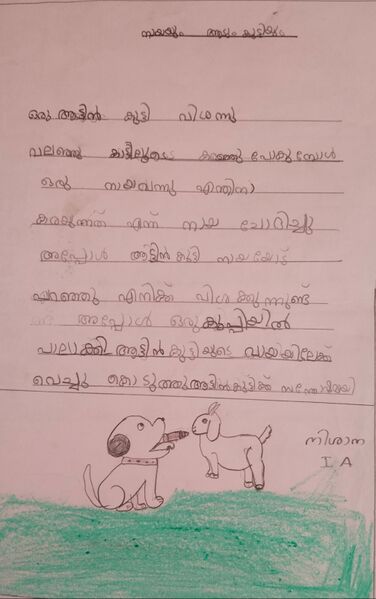 നായയും ആടും കുട്ടിയും
ഒരു ആട്ടിൻ കുട്ടി വിശന്നു
വലഞ്ഞു കാട്ടിലൂടെ കരഞ്ഞു പോകുമ്പോൾ
ഒരു നായവന്നു എന്തിനാ
കരയുന്നത് എന്ന് നായ ചോദിച്ചു
അപ്പോൾ ആട്ടിൻ കുട്ടി നായയോട്
പറഞ്ഞു എനിക്ക് വിശക്കുന്നുണ്ട്
അപ്പോൾ ഒരു കുപ്പിയിൽ
പാലാക്കി ആട്ടിൻ കുട്ടിയുടെ വായയിലേക്ക്
വെച്ചു കൊടുത്തു ആട്ടിൻകുട്ടിക്ക് സന്തോഷമായി
നിശാന
I A